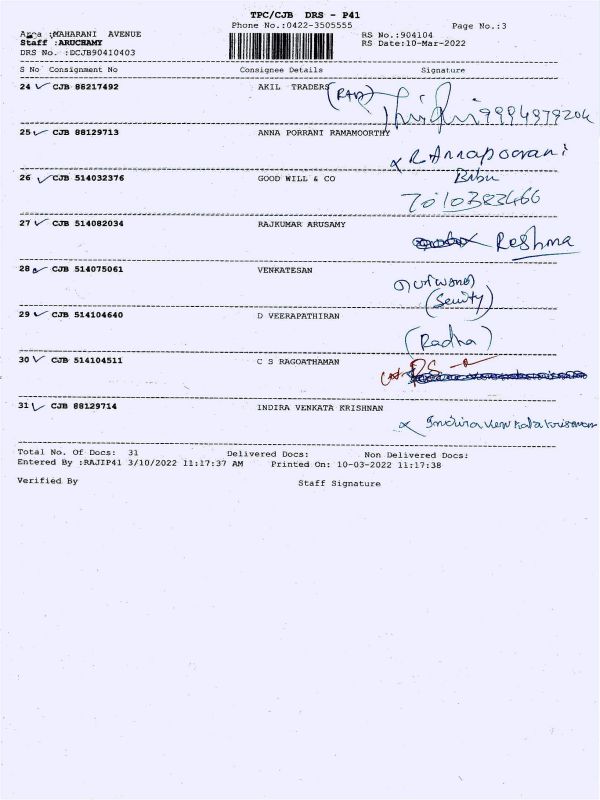 TPC/CJB DRS - P41
Phone No.:0422-3505555
Page No.:3
Area :MAHARANI AVENUE
RS No.:904104
Staff :ARUCHAMY
RS Date:10-Mar-2022
DRS No. :DCJB90410403
S No Consignment No Consignee Details Signature
24 ✓ CJB 88217492 AKIL TRADERS 9994979204
25 ✓ CJB 88129713 ANNA PORRANI RAMAMOORTHY
R Annapoorani
26 ✓ CJB 514032376 GOOD WILL & CO Babu
7010383466
27 ✓ CJB 514082034 RAJKUMAR ARUSAMY
Reshma
28 CJB 514075061 VENKATESAN
29 ✓ CJB 514104640 D VEERAPATHIRAN
(Radha)
30 ✓ CJB 514104511 C S RAGOATHAMAN
31 ✓ CJB 88129714 INDIRA VENKATA KRISHNAN
Indira Venkatakrishnan
Total No. Of Docs: 31 Delivered Docs: Non Delivered Docs:
Entered By :RAJIP41 3/10/2022 11:17:37 AM Printed On: 10-03-2022 11:17:38
Verified By Staff Signature